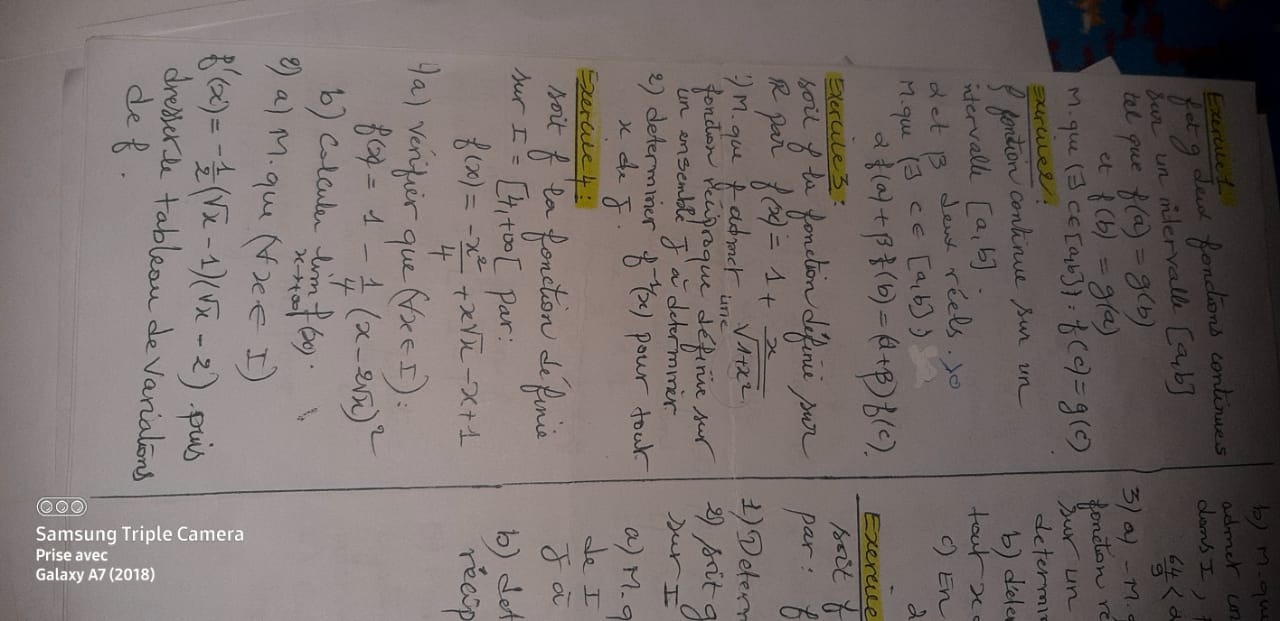 Exercice 1
f et g deux fonctions continues
sur un intervalle [a,b]
tel que f(a) = g(b)
et f(b) = g(a)
M.que (∃ c∈[a,b]): f(c) = g(c)
exercice 2:
f fonction continue sur un
intervalle [a,b].
α et β deux réels. >0
M.que (∃ c∈ [a,b])
αf(a) + βf(b) = (α+β)f(c).
Exercice 3:
soit f la fonction définie sur
ℝ par f(x) = 1 + x/√1+x²
1) M.que f admet une
fonction réciproque définie sur
un ensemble J à déterminer
2) déterminer f⁻¹(x) pour tout
x de J.
Exercice 4:
soit f la fonction définie
sur I = [4,+∞[ par:
f(x) = -x²/4 + x√x - x + 1
1) a) vérifier que (∀x∈I):
f(x) = 1 - 1/4 (x - 2√x)²
b) Calculer lim f(x).
x→+∞
2) a) M.que (∀x∈I)
f'(x) = -1/2(√x - 1)(√x - 2). puis
dresser le tableau de variations
de f.
b) M.que
admet un
dans I,
64/9 <
3) a) - M.
fonction ré
sur un
determi
b) déter
tout x
c) En
Exercice
soit f
par: f
1) Determ
2) soit g
sur I
a) M.q
de I
J à
b) det
récip
Samsung Triple Camera
Prise avec
Galaxy A7 (2018)